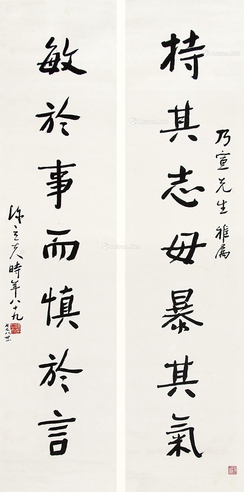 乃宣先生雅属
持其志毋暴其氣
敏於事而慎於言
陳立夫時年八十九